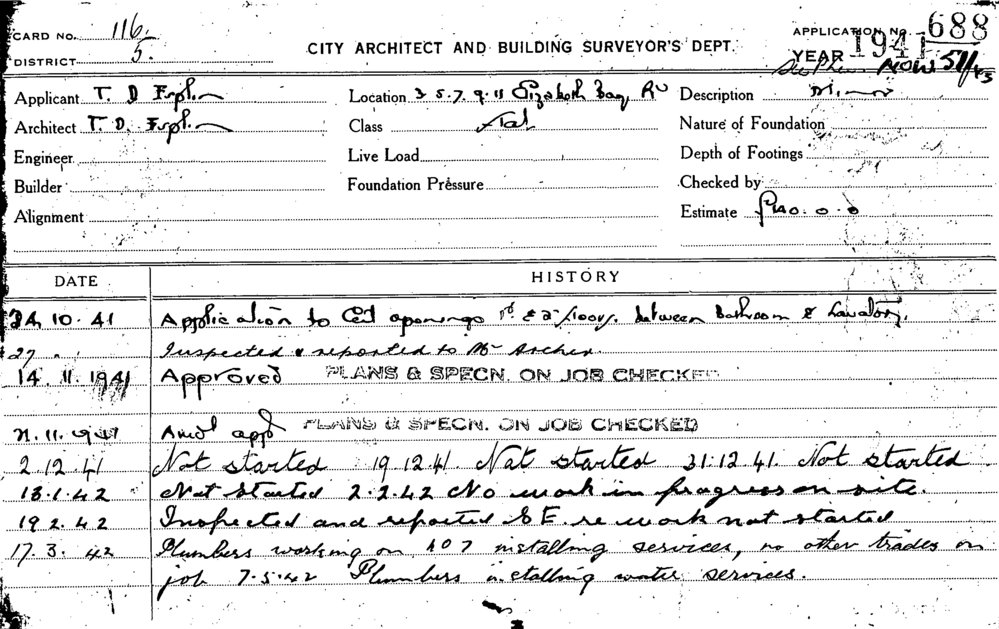 CARD NO. 116/5.
DISTRICT
CITY ARCHITECT AND BUILDING SURVEYOR'S DEPT.
APPLICATION No. 688
YEAR 1941
NOW 511/43
Applicant T. D. Esplin
Location 3 5. 7. 9. 11 Elizabeth Bay Rd
Description Minor
Architect T. D. Esplin
Class Flat
Nature of Foundation
Engineer
Live Load
Depth of Footings
Builder
Foundation Pressure
Checked by
Alignment
Estimate £140. 0. 0
DATE HISTORY
24 10. 41 Application to Cut openings 1st & 2nd floors. between Bathroom & Lavatory.
27 " " Inspected & reported to Mr Archer
14. 11. 1941 Approved PLANS & SPECN. ON JOB CHECKED
21. 11. 1941 Amd appd PLANS & SPECN. ON JOB CHECKED
2. 12. 41 Not started 19. 12. 41. Not started 31. 12. 41. Not started
13. 1. 42 Not Started 2. 2. 42 No work in progress on site.
19 2. 42 Inspected and reported S E. re work not started
17. 3. 42 Plumbers working on installing services, no other trades on
job 7. 5. 42 Plumbers installing water services.